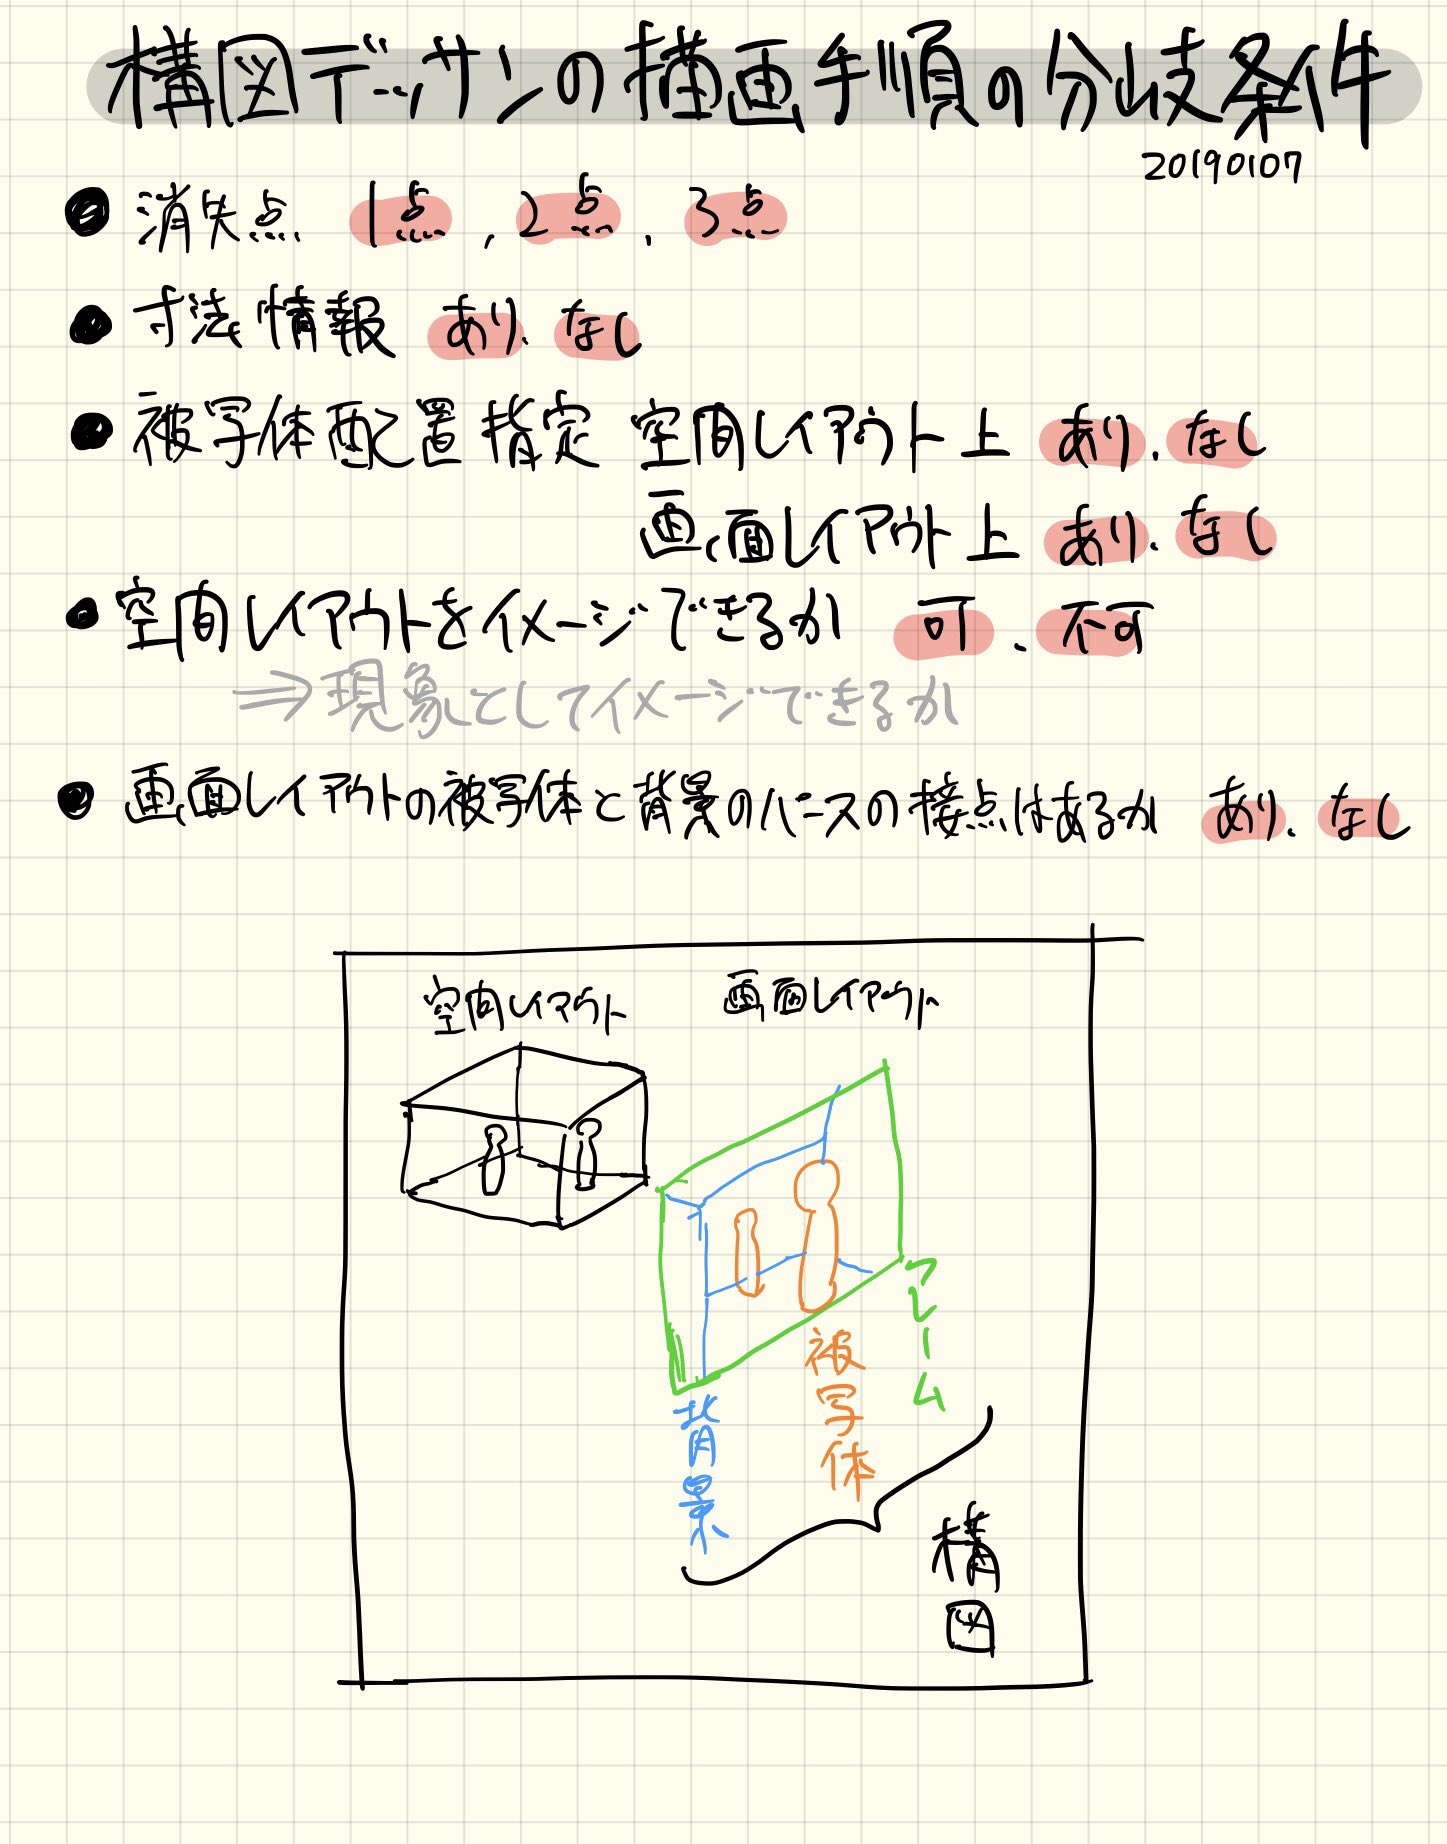 構図デッサンの描画手順の分岐条件
20190107
● 消失点 1点, 2点, 3点
● 寸法情報 あり、なし
● 被写体配置指定 空間レイアウト上 あり、なし
画面レイアウト上 あり、なし
● 空間レイアウトをイメージできるか 可、不可
⇒現象としてイメージできるか
● 画面レイアウトの被写体と背景のパースの接点はあるか あり、なし
空間レイアウト
画面レイアウト
フレーム
被写体
背景
構図